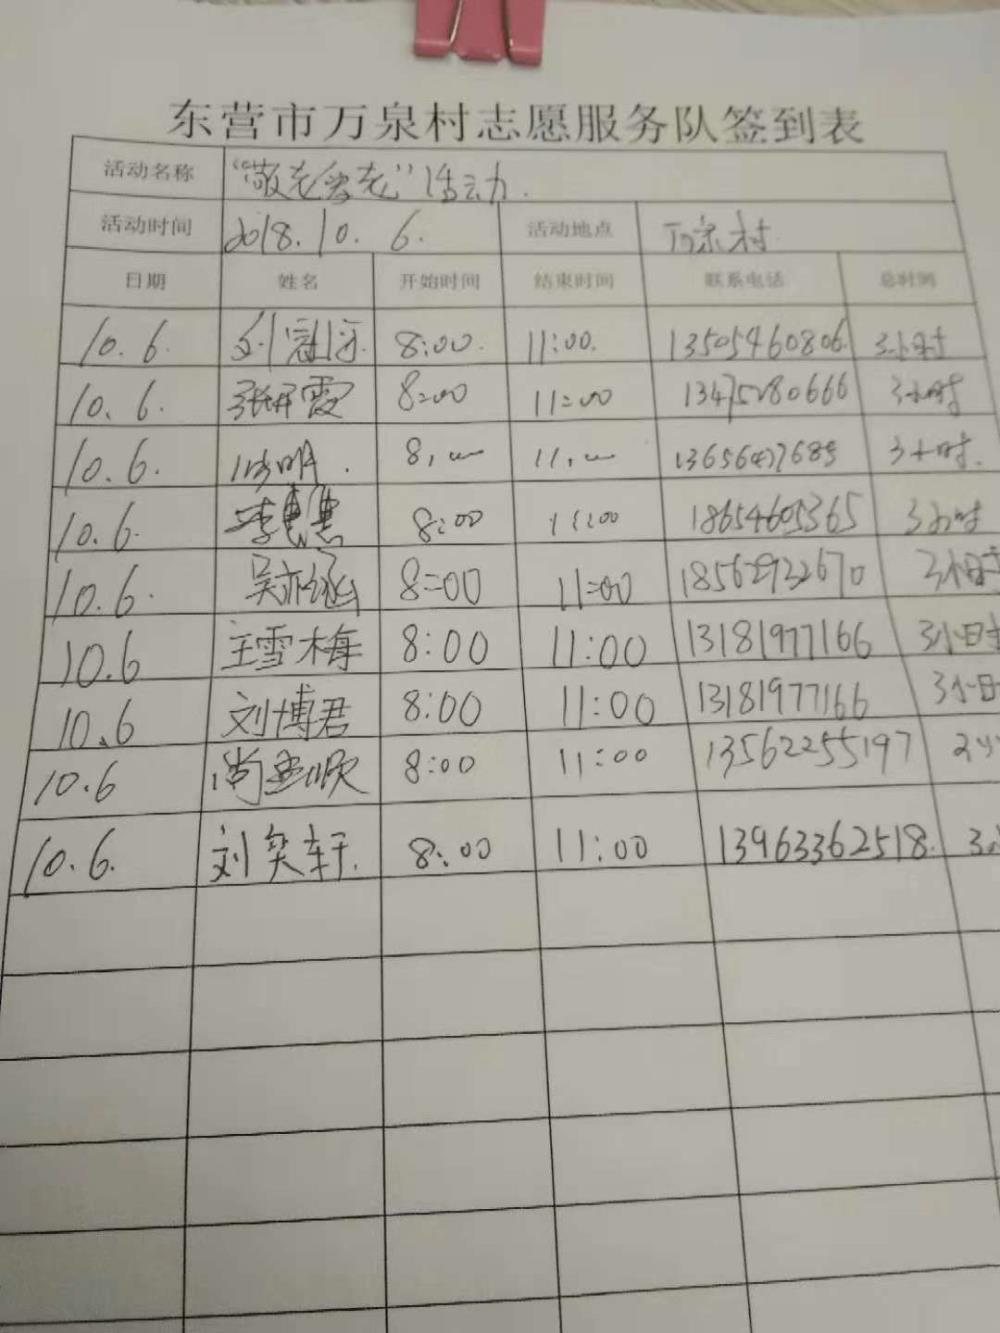 东营市万泉村志愿服务队签到表
活动名称 “敬老爱老”活动.
活动时间 2018.10.6. 活动地点 万泉村
日期 姓名 开始时间 结束时间 联系电话 总时间
10.6. 刘冠河. 8:00. 11:00. 13505460806. 3小时
10.6. 张研霞 8:00 11:00 3小时
10.6. 3小时.
10.6. 8:00 11:00 18654605365 3小时
10.6. 吴亦涵 8:00 11:00 18562932670 3小时
10.6 王雪梅 8:00 11:00 13181977166 3小时
10.6 刘博君 8:00 11:00 13181977166 3小时
10.6 尚 8:00 11:00 13562255197 3小
10.6. 刘奕轩. 8:00 11:00 13963362518. 3小